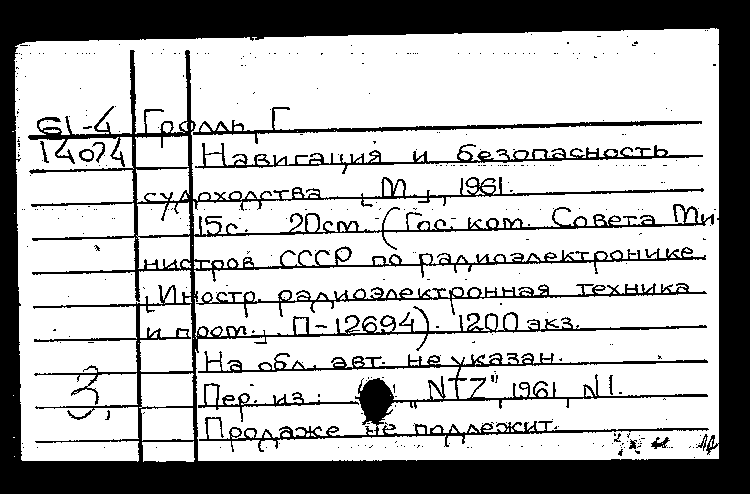 61-4 Гролль, Г
14074 Навигация и безопасность
судоходства [М.], 1961.
15с. 20см. (Гос. ком. Совета Ми-
нистров СССР по радиоэлектронике.
[Иностр. радиоэлектронная техника
и пром.]. П-12694). 1200 экз.
На обл. авт. не указан.
Пер. из: "NTZ", 1961, N1.
3.
Продаже не подлежит.